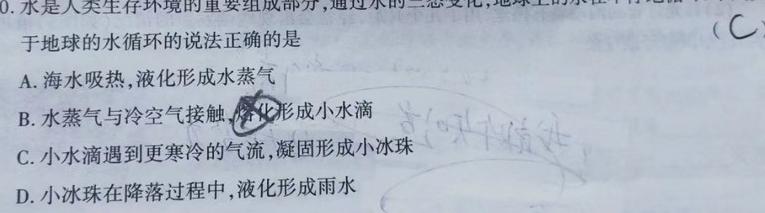 0. 水是人类生存环境的重要组成部分,通过水的三态变化,地球上的水在不
于地球的水循环的说法正确的是 (C)
A. 海水吸热,液化形成水蒸气
B. 水蒸气与冷空气接触,熔化形成小水滴
C. 小水滴遇到更寒冷的气流,凝固形成小冰珠
D. 小冰珠在降落过程中,液化形成雨水